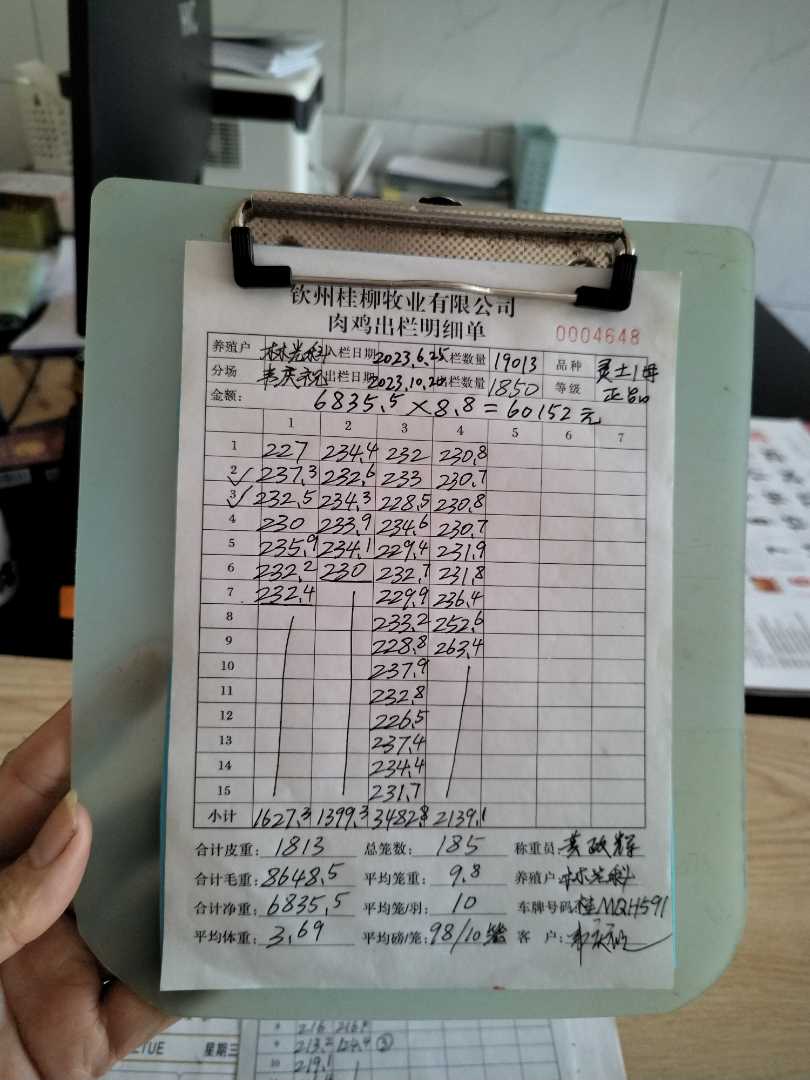 钦州桂柳牧业有限公司
肉鸡出栏明细单 0004648
养殖户 林光科 入栏日期 2023.6.25 栏数量 19013 品种 灵土1号
分场 韦庆祝 出栏日期 2023.10.24 出栏数量 1850 等级 正品
金额: 6835.5 × 8.8 = 60152元
1 2 3 4 5 6 7
1 227 234.4 232 230.8
2 237.3 232.6 233 230.7
3 232.5 234.3 228.5 230.8
4 230 233.9 234.6 230.7
5 235.9 234.1 229.4 231.9
6 232.2 230 232.7 231.8
7 232.4 229.9 236.4
8 233.2 252.6
9 228.8 263.4
10 237.9
11 232.8
12 226.5
13 237.4
14 234.4
15 231.7
小计 1627.3 1399.3 3482.8 2139.1
合计皮重: 1813 总笼数: 185 称重员: 黄政辉
合计毛重: 8648.5 平均笼重: 9.8 养殖户: 林光科
合计净重: 6835.5 平均笼/羽: 10 车牌号码: 桂MQH591
平均体重: 3.69 平均磅/笼: 98/10 客户:
8 216 216.
9 213.2 124.4 ③
10 219.1
星期三